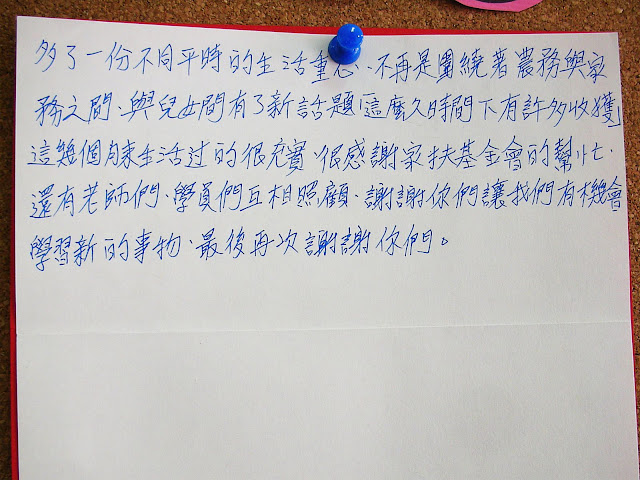 多了一份不同平時的生活重心、不再是圍繞著農務與家
務之間、與兒女間有了新話題「這麼久時間下有許多收獲」
這幾個月來生活过的很充實、很感謝家扶基金會的幫忙、
還有老師們、學員們互相照顧、謝謝你們讓我們有機會
學習新的事物、最後再次謝謝你們。